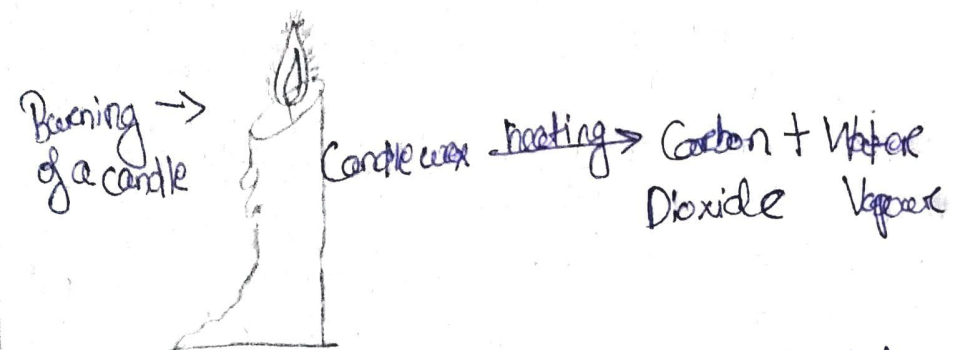 Burning →
of a candle
Candle wax heating → Carbon + Water
Dioxide Vapour